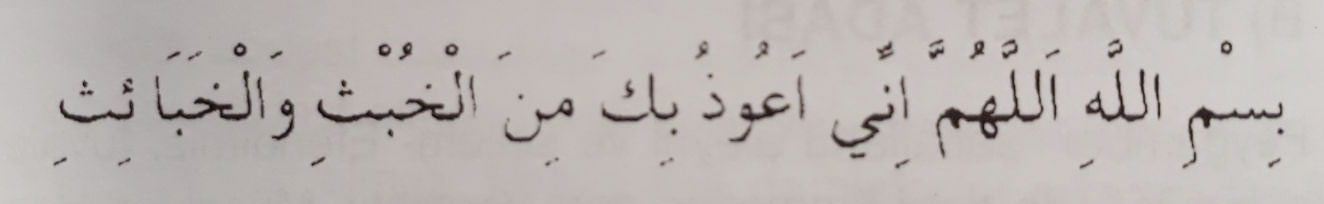 بِسْمِ اللَّهِ اَللَّهُمَّ اِنِّي اَعُوذُ بِكَ مِنَ الْخُبْثِ وَالْخَبَائِثِ